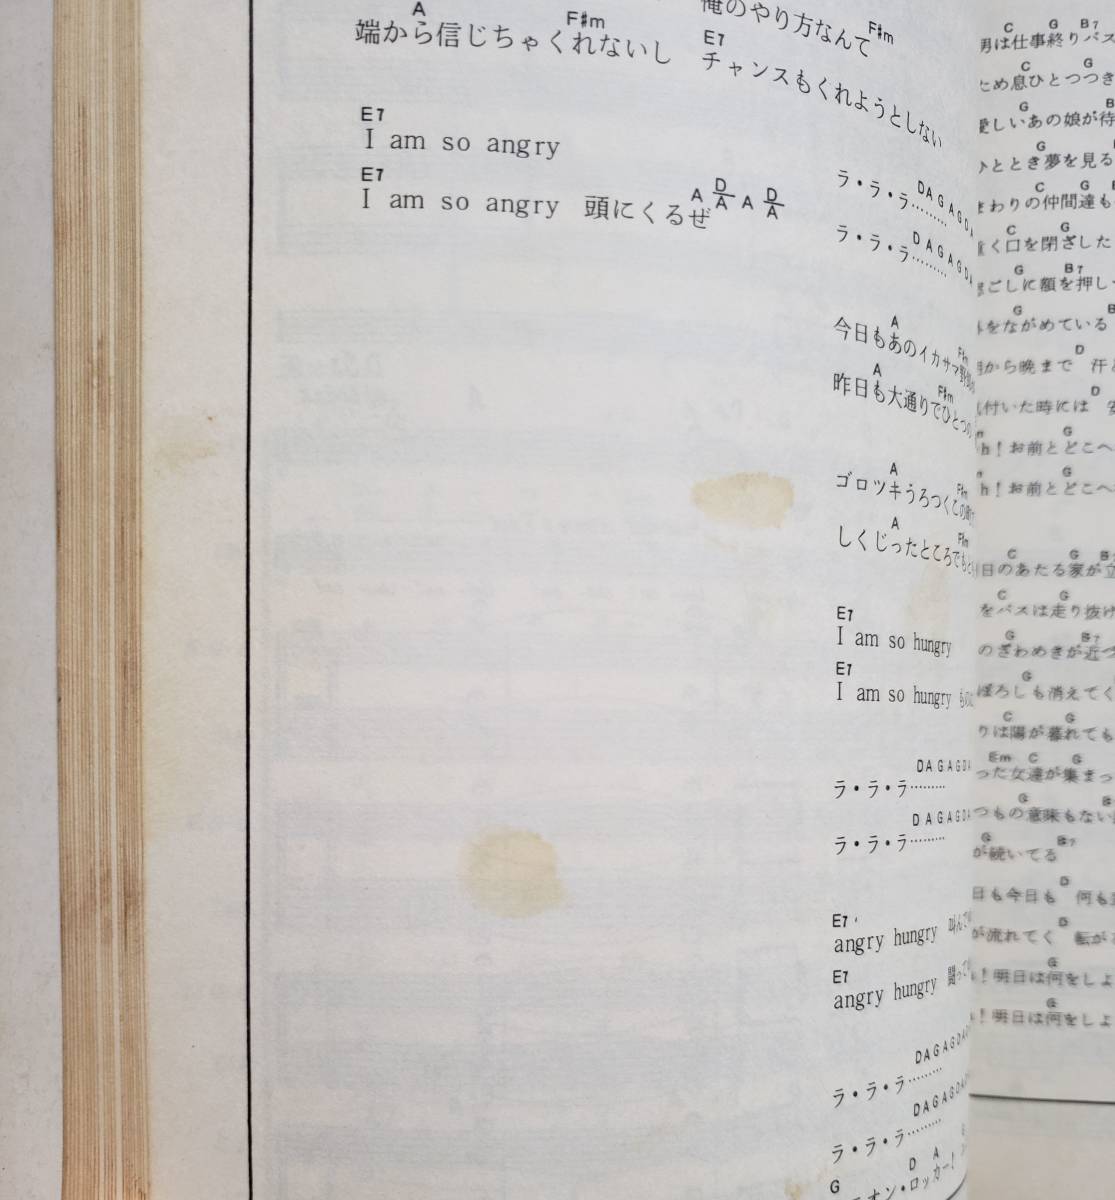 俺のやり方なんて
A F♯m F♯m
端から信じちゃくれないし
E7
チャンスもくれようとしない
E7
I am so angry
E7 A D/A A D/A
I am so angry 頭にくるぜ
DAGAGDA
ラ・ラ・ラ………
DAGAGDA
ラ・ラ・ラ………
A F♯m
今日もあのイカサマ
A F♯m
昨日も大通りでひとつの
A F♯m
ゴロツキうろつくこの
A F♯m
しくじったところでも
E7
I am so hungry
E7
I am so hungry
DAGAGDA
ラ・ラ・ラ………
DAGAGDA
ラ・ラ・ラ………
E7
angry hungry
E7
angry hungry 闘って
DAGAGDA
ラ・ラ・ラ………
DAGAGDA
ラ・ラ・ラ………
G D A
オン・ロッカー!
C G B7
男は仕事終りバス
C G
ため息ひとつつき
G B
愛しいあの娘が待
G
ひととき夢を見る
C G B
まわりの仲間達も
C G
重く口を閉ざした
G B7
ごしに額を押し
G B
をながめている
D
から晩まで 汗
D
付いた時には
G
h!お前とどこへ
G
h!お前とどこへ
C G B
日のあたる家が立
C G
をバスは走り抜け
G B7
のざわめきが近づ
G
ぼろしも消えてく
C G
りは陽が暮れても
Em C G
った女達が集まっ
G B
つもの意味もない
G B7
が続いてる
D
日も今日も 何も
D
が流れてく 転が
G
!明日は何をしよ
G
!明日は何をしよ